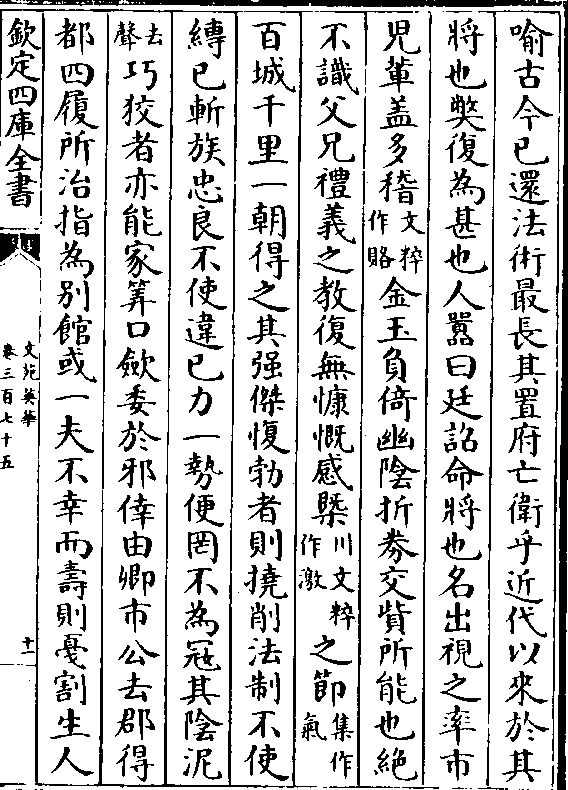 喻古今已還法術最長其置府亡衛乎近代以來於其
將也獘復為甚也人囂曰廷詔命將也名出視之率市
児軰盖多稽文粹作賂金玉負倚幽陰折劵交貨所能也絶
不識父兄禮義之教復無慷慨感槩川文粹作激之節集作氣
百城千里一朝得之其强傑愎勃者則撓削法制不使
縛已斬族忠良不使違已力一勢便罔不為冦其陰泥
去聲巧狡者亦能家筭口歛委於邪倖由卿市公去郡得
都四履所治指為別館或一夫不幸而壽則戞割生人
欽定四庫全書
文苑英華
卷三百七十五
十一